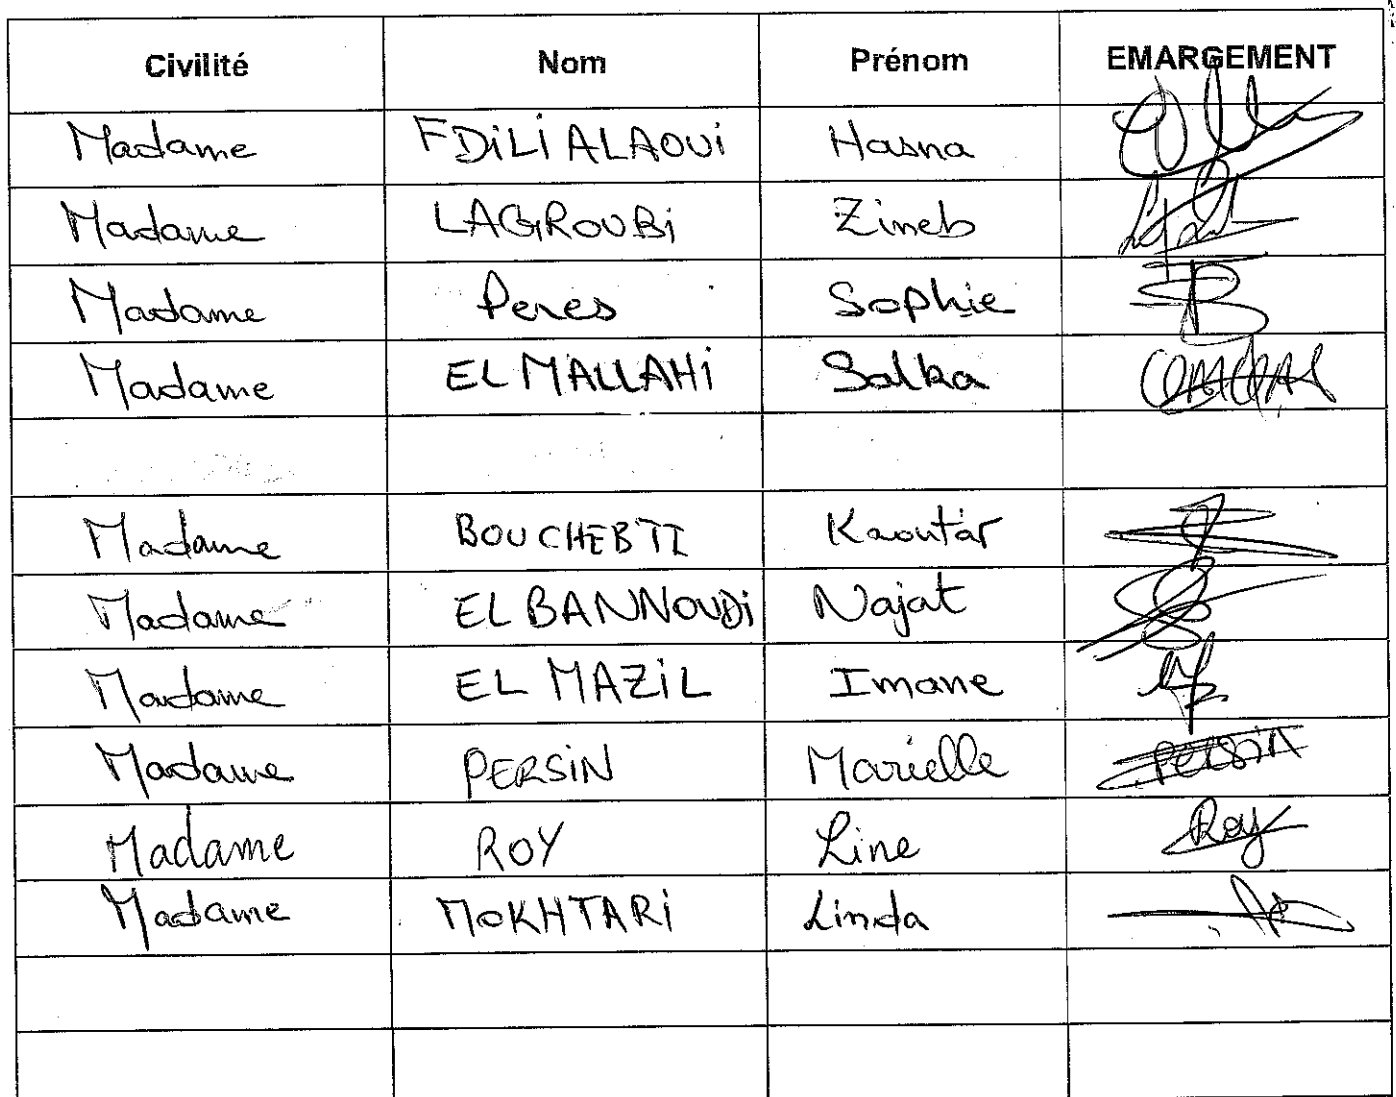 Civilité Nom Prénom EMARGEMENT
Madame FDILI ALAOUI Hasna
Madame LAGROUBI Zineb
Madame Peres Sophie
Madame EL MALLAHI Salka
Madame BOUCHEBTI Kaoutar
Madame EL BANNOUDI Najat
Madame EL MAZIL Imane
Madame PERSIN Marielle PERSIN
Madame ROY Line Roy
Madame MOKHTARI Linda